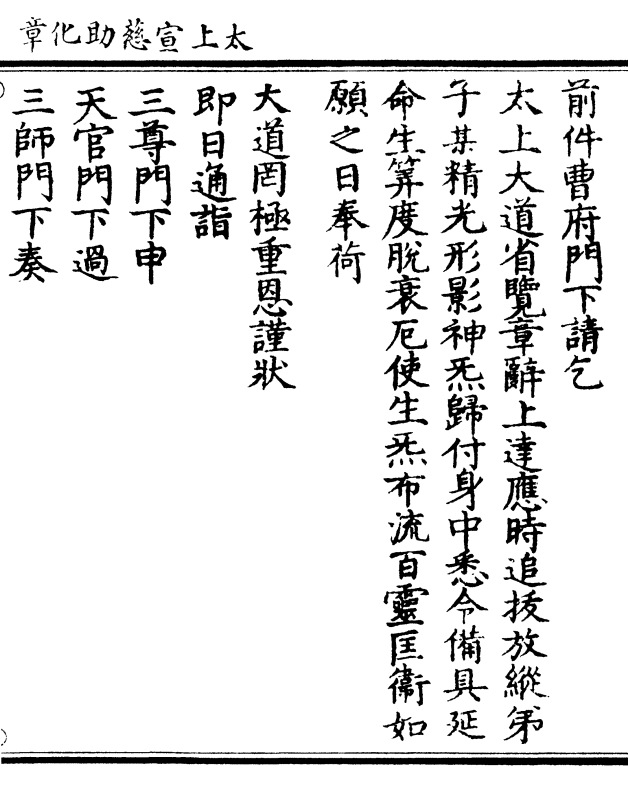 太上宣慈助化章
前件曹府門下請乞
太上大道省覽章辭上達應時追拔放縱弟
子某精光形影神炁歸付身中悉令備具延
命生筭度脫衰厄使生炁布流百靈匡衞如
願之日奉荷
大道罔極重恩謹狀
即日通詣
三尊門下申
天官門下過
三師門下奏